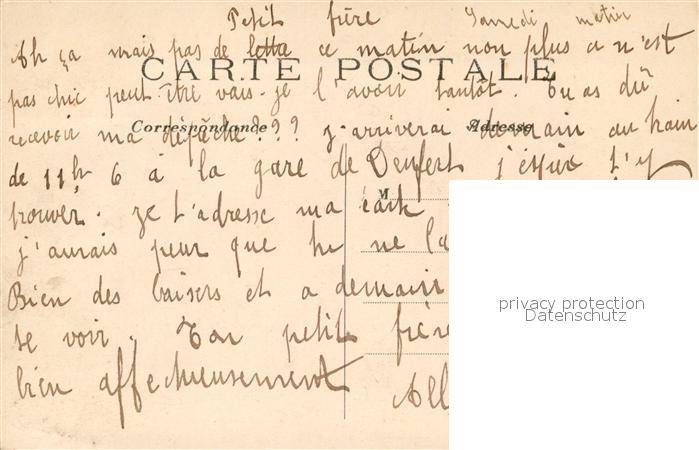 Petit frère Samedi matin
Ah ça mais pas de lettre ce matin non plus a n'est
CARTE POSTALE
pas chic peut-être vais-je l'avoir tantôt. Tu as dû
Correspondance Adresse
recevoir ma dépêche??? j'arriverai demain au train
de 11h 6 à la gare de Denfert j'espère t'y
M
trouver. Je t'adresse ma carte
j'aurais peur que tu ne la
Bien des baisers et a demain
te voir. Ton petit frère
bien affectueusement
privacy protection
Datenschutz